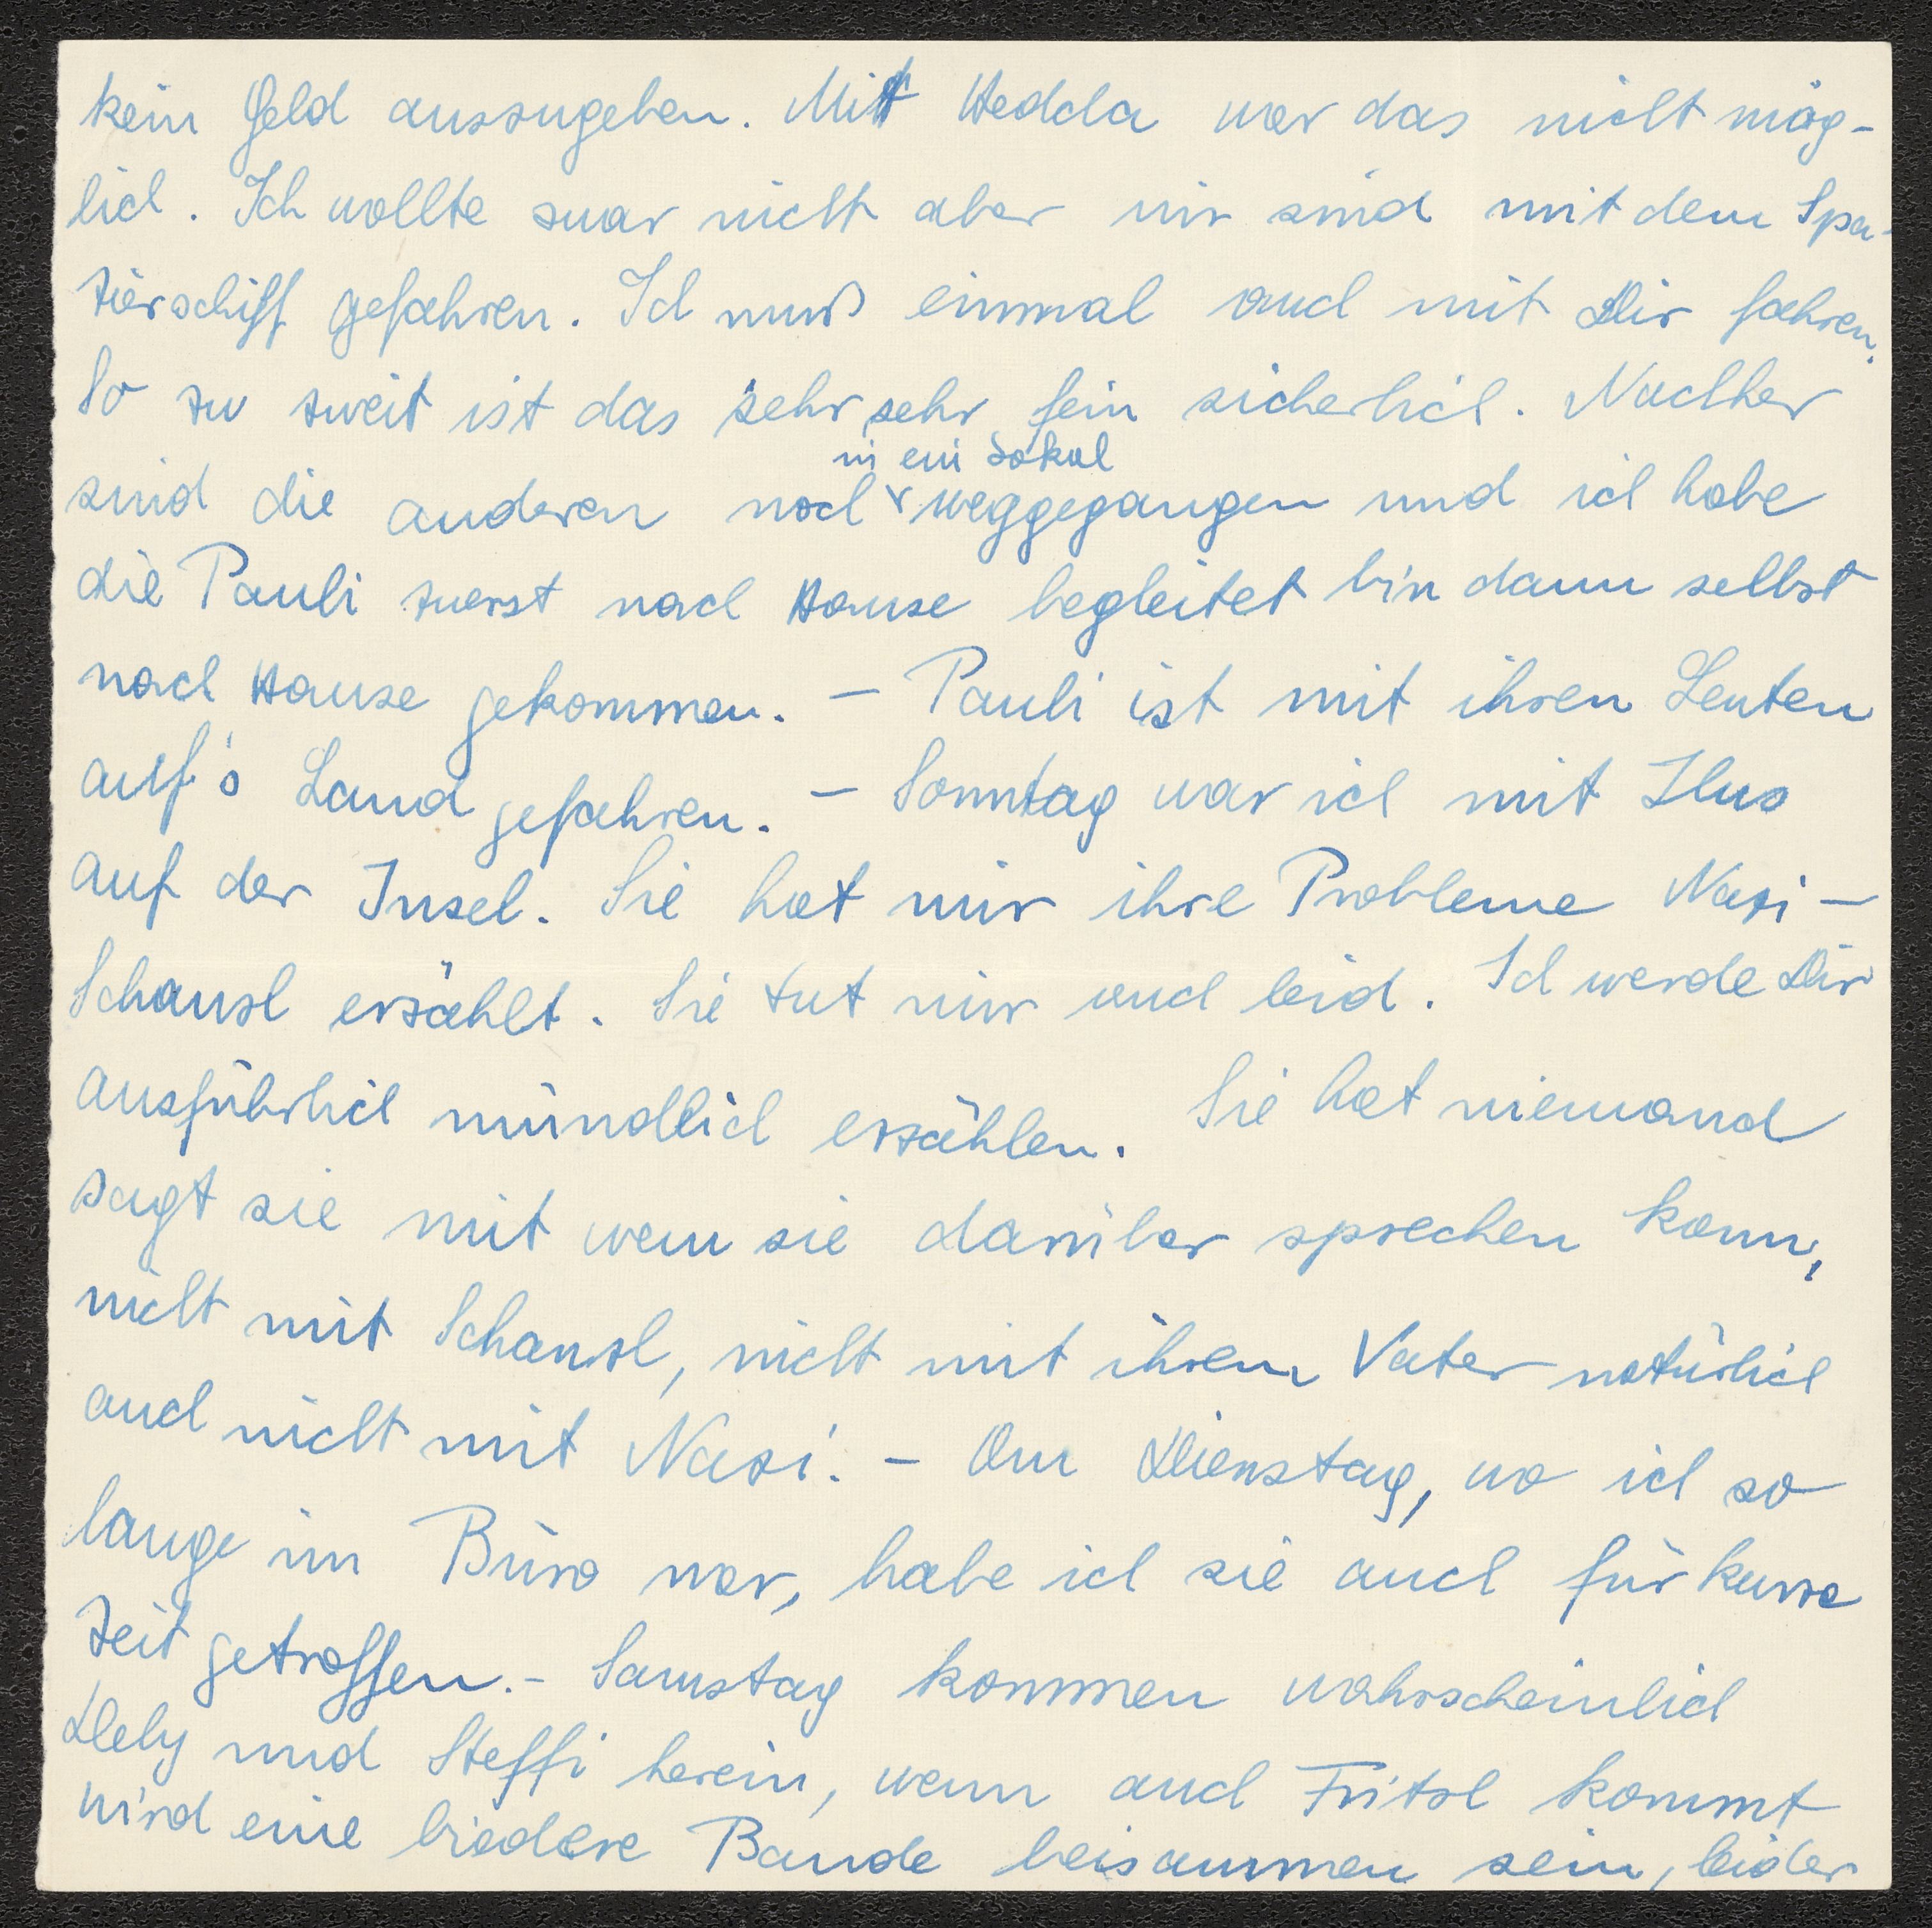 kein Geld auszugeben. Mit Hedda war das nicht mög-
lich. Ich wollte zwar nicht aber wir sind mit dem Spa-
zierschiff gefahren. Ich muß einmal auch mit Dir fahren.
So zu zweit ist das sehr sehr fein sicherlich. Nachher
in ein Lokal
sind die anderen noch weggegangen und ich habe
die Pauli zuerst nach Hause begleitet bin dann selbst
nach Hause gekommen. – Pauli ist mit ihren Leuten
auf's Land gefahren. – Sonntag war ich mit Ilus
auf der Insel. Sie hat mir ihre Probleme Nazi –
Schansl erzählt. Sie tut mir auch leid. Ich werde Dir
ausführlich mündlich erzählen. Sie hat niemand
sagt sie mit wem sie darüber sprechen kann,
nicht mit Schansl, nicht mit ihrem Vater natürlich
auch nicht mit Nazi. – Am Dienstag, wo ich so
lange im Büro war, habe ich sie auch für kurze
Zeit getroffen. – Samstag kommen wahrscheinlich
Dely und Steffi herein, wenn auch Fritzl kommt
wird eine biedere Bande beisammen sein, leider